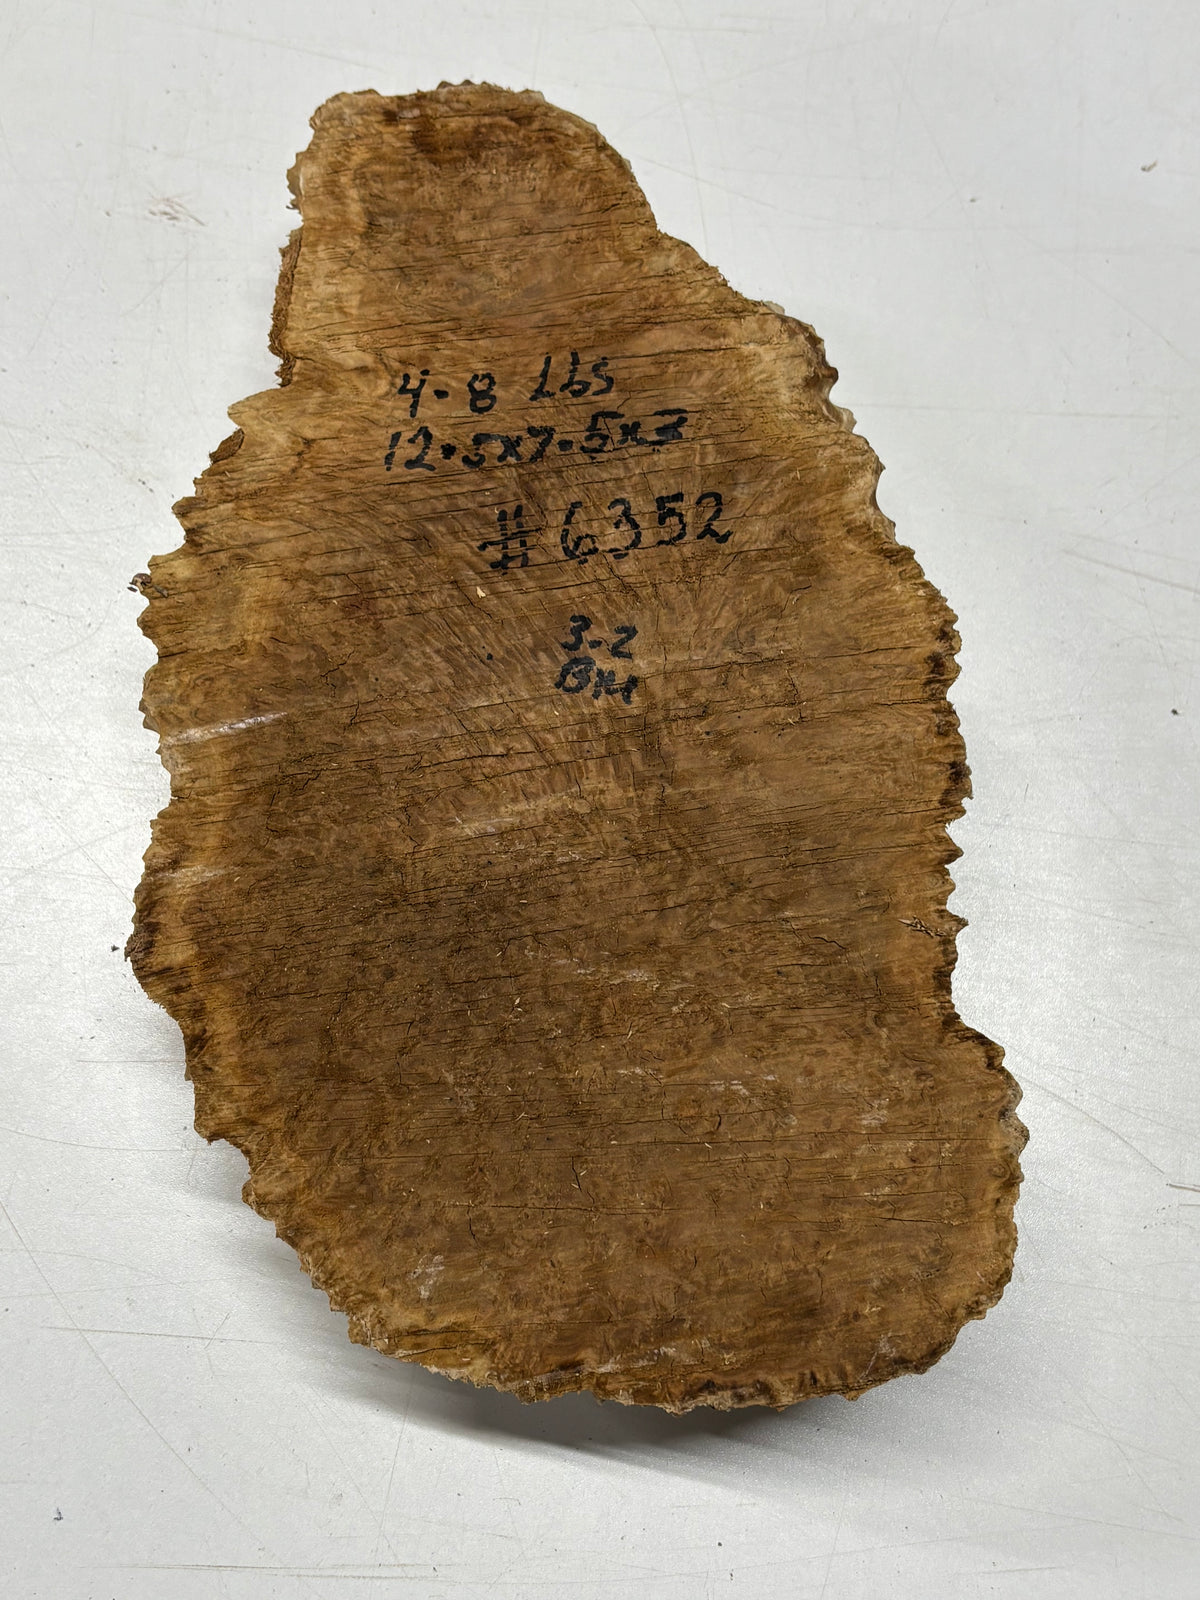 4.8 Lbs
12.5x7.5x3
#6352
3-2